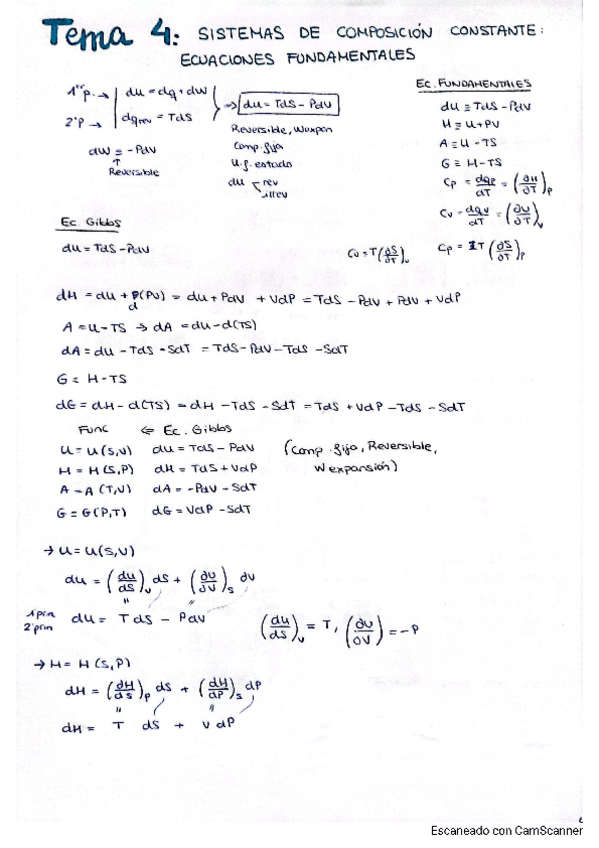 Tema 4: SISTEMAS DE COMPOSICIÓN CONSTANTE:
ECUACIONES FUNDAMENTALES
1er p. → du = dq + dw
2º p → dqrev = TdS
⇒ du = TdS - PdV
dw = -PdV
↑
Reversible
Reversible, Wexpan
Comp. fija
U. f. estado
du < rev
irrev
Ec. FUNDAMENTALES
du ≡ TdS - PdV
H ≡ U + PV
A ≡ U - TS
G ≡ H - TS
Cp = dqp/dT = (∂H/∂T)p
Cv = dqv/dT = (∂U/∂T)v
Cv = T(∂S/∂T)v
Cp = T(∂S/∂T)p
Ec. Gibbs
du = TdS - PdV
dH = du + d(PV) = du + PdV + VdP = TdS - PdV + PdV + VdP
A = U - TS → dA = du - d(TS)
dA = du - TdS - SdT = TdS - PdV - TdS - SdT
G = H - TS
dG = dH - d(TS) = dH - TdS - SdT = TdS + VdP - TdS - SdT
Func ⇐ Ec. Gibbs
U = U(S,V) du = TdS - PdV (Comp. fija, Reversible,
H = H(S,P) dH = TdS + VdP W expansión)
A = A(T,V) dA = -PdV - SdT
G = G(P,T) dG = VdP - SdT
→ U = U(S,V)
du = (du/dS)v dS + (∂U/∂V)s dV
1 prin
2º prin
du = TdS - PdV
(du/dS)v = T, (∂U/∂V) = -P
→ H = H(S,P)
dH = (dH/dS)p dS + (dH/dP)s dP
dH = T dS + V dP
Escaneado con CamScanner